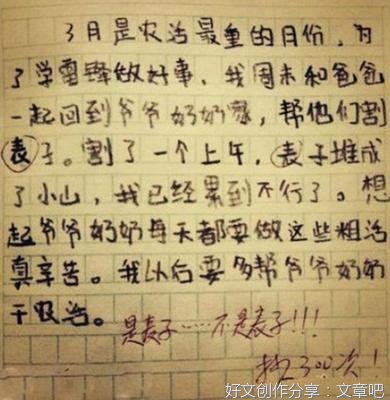 3月是农活最重的月份，为
了学雷锋做好事，我周末和爸爸
一起回到爷爷奶奶家，帮他们割
表子。割了一个上午，表子堆成
了小山，我已经累到不行了。想
起爷爷奶奶每天都要做这些粗活
真辛苦。我以后要多帮爷爷奶奶
干农活。
是麦子……不是表子!!!
抄300次！
好文创作分享：文章吧